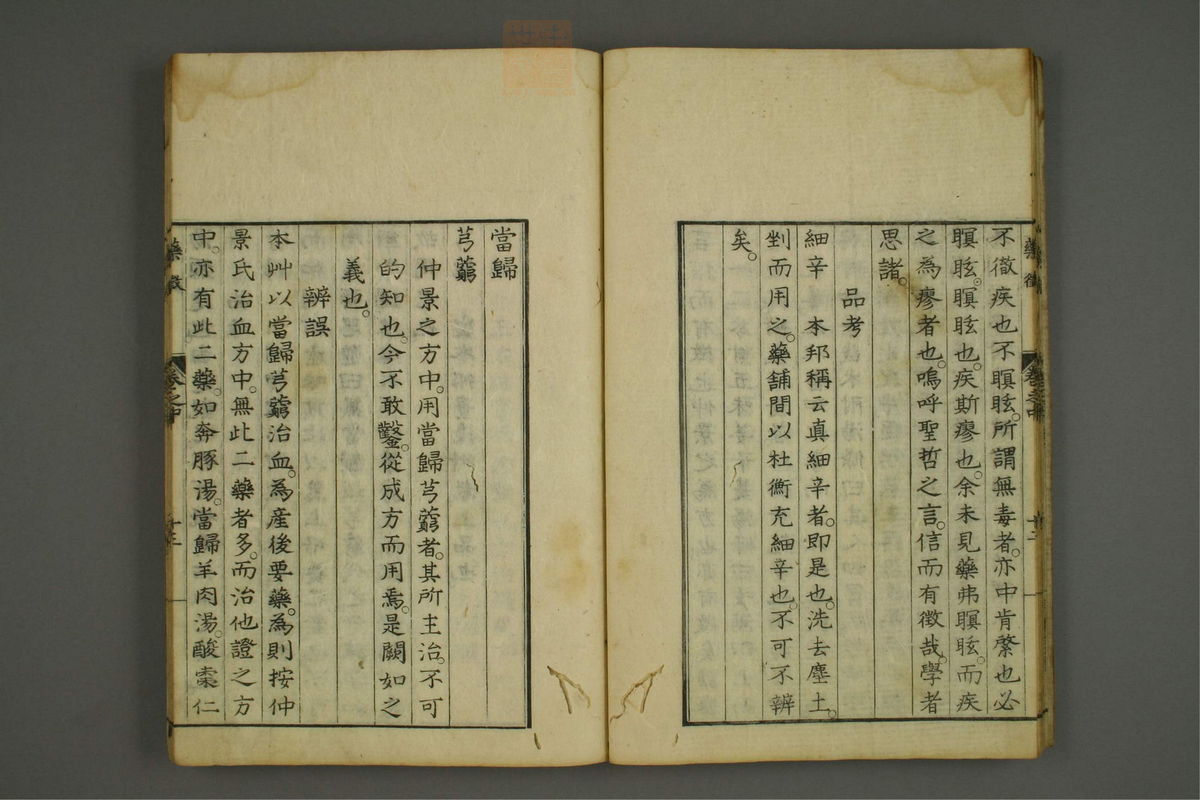 不徵疾也不瞑眩所謂無毒者亦中肯綮也必
瞑眩瞑眩也疾斯瘳也余未見藥弗瞑眩而疾
之為瘳者也嗚呼聖哲之言信而有徵哉學者
思諸
品考
細辛 本邦稱云真細辛者即是也洗去塵土
剉而用之藥鋪間以杜衡充細辛也不可不辨
矣
當歸
芎藭
仲景之方中用當歸芎藭者其所主治不可
的知也今不敢鑿從成方而用焉是闕如之
義也
辨誤
本艸以當歸芎藭治血為產後要藥為則按仲
景氏治血方中無此二藥者多而治他證之方
中亦有此二藥如奔豚湯當歸羊肉湯酸棗仁
藥徵
卷之中
十三